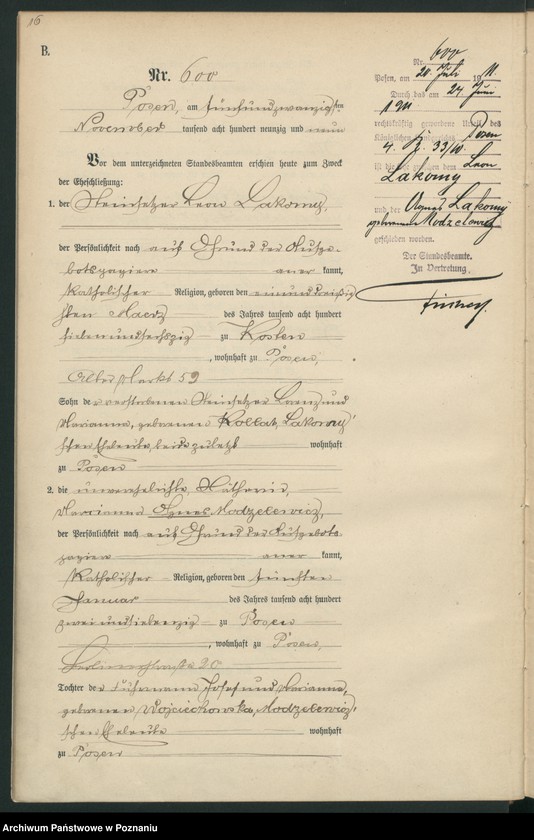 16
B.
Nr. 600
Posen, am fünfundzwanzigsten
November tausend acht hundert neunzig und neun
Vor dem unterzeichneten Standesbeamten erschien heute zum Zweck
der Eheschließung:
1. der Steinsetzer Leon Lakomy,
der Persönlichkeit nach auf Grund der Aufge-
botspapiere aner kannt,
katholischer Religion, geboren den einunddreißig
sten Maerz des Jahres tausend acht hundert
siebenundsechszig zu Kosten
, wohnhaft zu Posen,
Alter Markt 59
Sohn der verstorbenen Steinsetzer Lorenz und
Marianna, geborenen Kollat, Lakomy'
schen Eheleute, beide zuletzt wohnhaft
zu Posen
2. die unverehelichte
Marianna Agnes Modzelewicz,
der Persönlichkeit nach auf Grund der Aufgebots-
papiere aner kannt,
katholischer Religion, geboren den fünften
Januar des Jahres tausend acht hundert
zwei und siebenzig zu Posen
, wohnhaft zu Posen,
Berlinerstraße 20
Tochter der Fuhrmann Josef und Marianna,
geborenen Wojciechowska, Modzelewicz'
schen Eheleute wohnhaft
zu Posen
Nr. 600
Posen, am 20. Juli 1911
Durch das am 24. Juni
1911
rechtskräftig gewordene Urteil des
Königlichen Landgerichts Posen
4. R. 33/10.
ist die Ehe zwischen dem Leon
Lakomy
und der Agnes Lakomy
geborene Modzelewicz
geschieden worden.
Der Standesbeamte.
In Vertretung
Archiwum Państwowe w Poznaniu